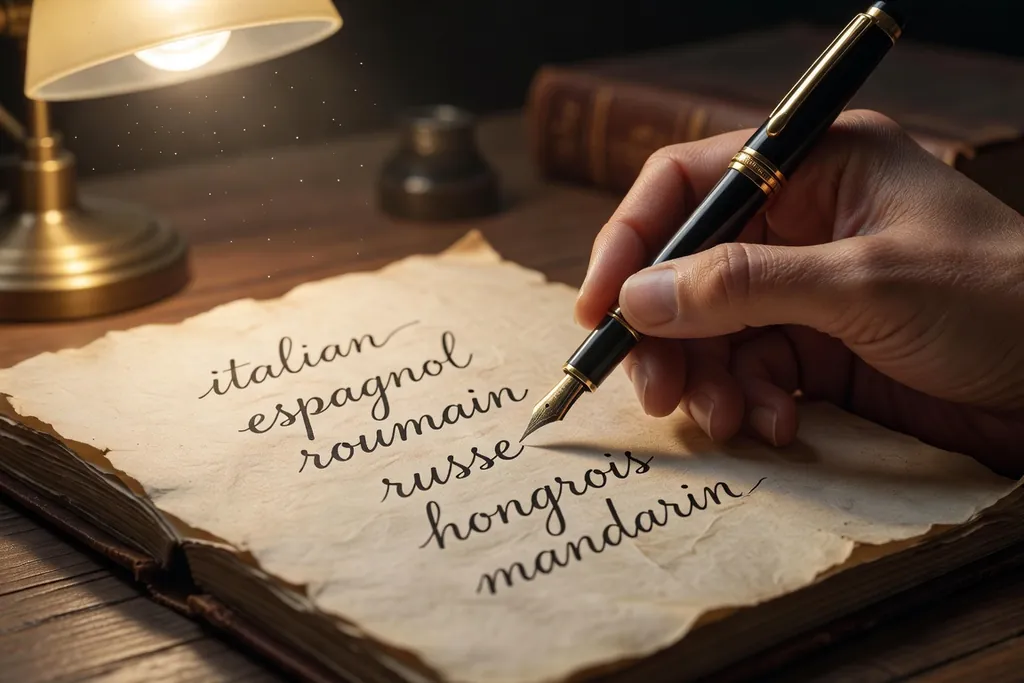 italian
espagnol
roumain
russe
hongrois
mandarin